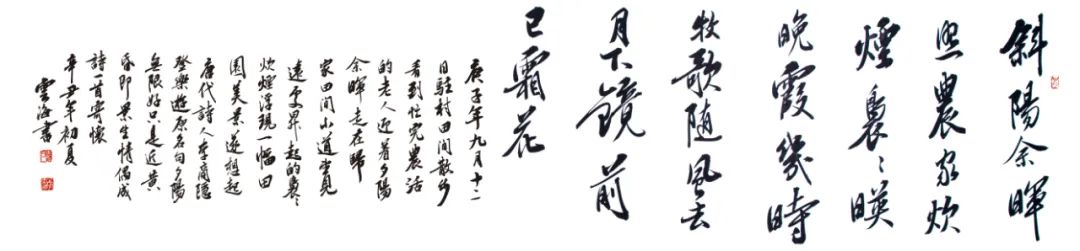 斜陽余暉
照農家炊
煙裊々暎
晚霞幾時
牧歌随風去
月下鏡前
已霜花
庚子年九月十二
日駐村田間散步
看到忙完農活
的老人迎着夕陽
余暉走在歸
家田間小道當見
遠處昇起的裊々
炊煙浮現一幅田
園美景遂想起
唐代詩人李商隱
登樂遊原名句夕陽
無限好只是近黃
昏即景生情偶成
詩一首寄懷
辛丑年初夏
雲海書